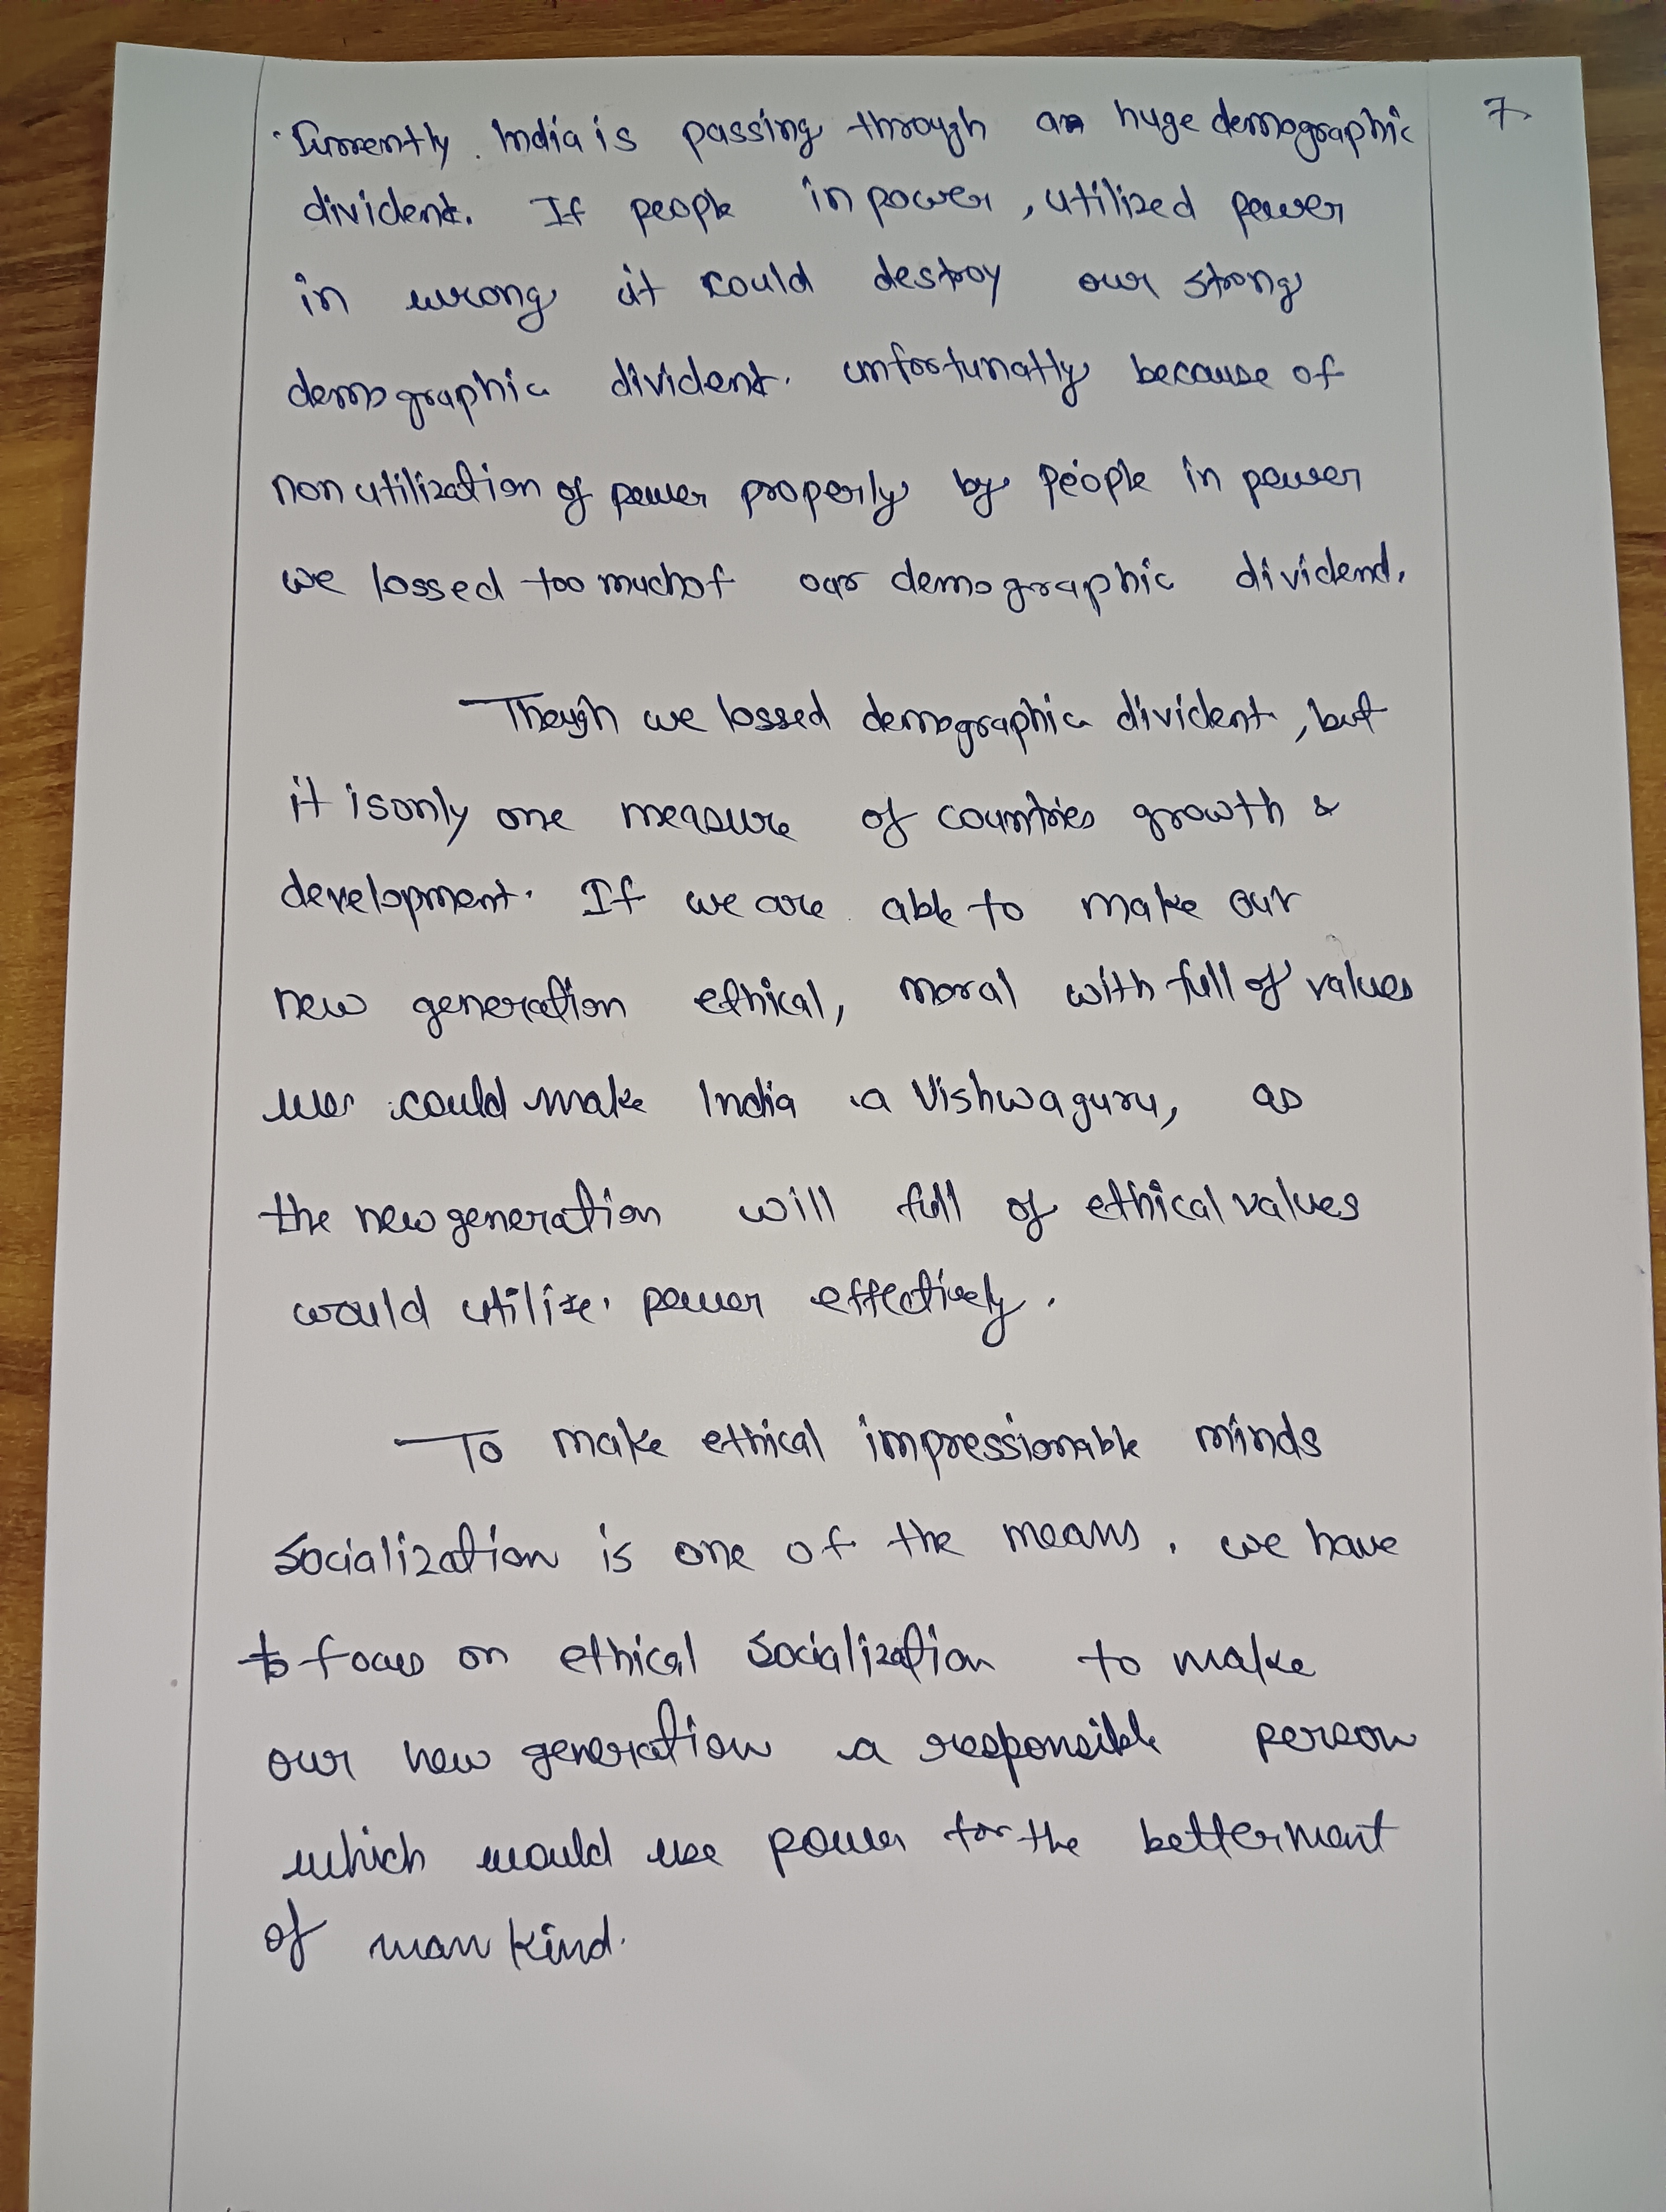 Currently India is passing through a huge demographic 7
divident. If people in power, utilized power
in wrong it could destroy our strong
demographic divident. unfortunatly because of
non utilization of power properly by people in power
we lossed too much of our demographic dividend.
Though we lossed demographic divident, but
it is only one measure of countries growth &
development. If we are able to make our
new generation ethical, moral with full of values
we could make India a Vishwaguru, as
the new generation will full of ethical values
would utilize power effectively.
To make ethical impressionable minds
socialization is one of the means. we have
to focus on ethical socialization to make
our new generation a responsible person
which would use power for the betterment
of man kind.